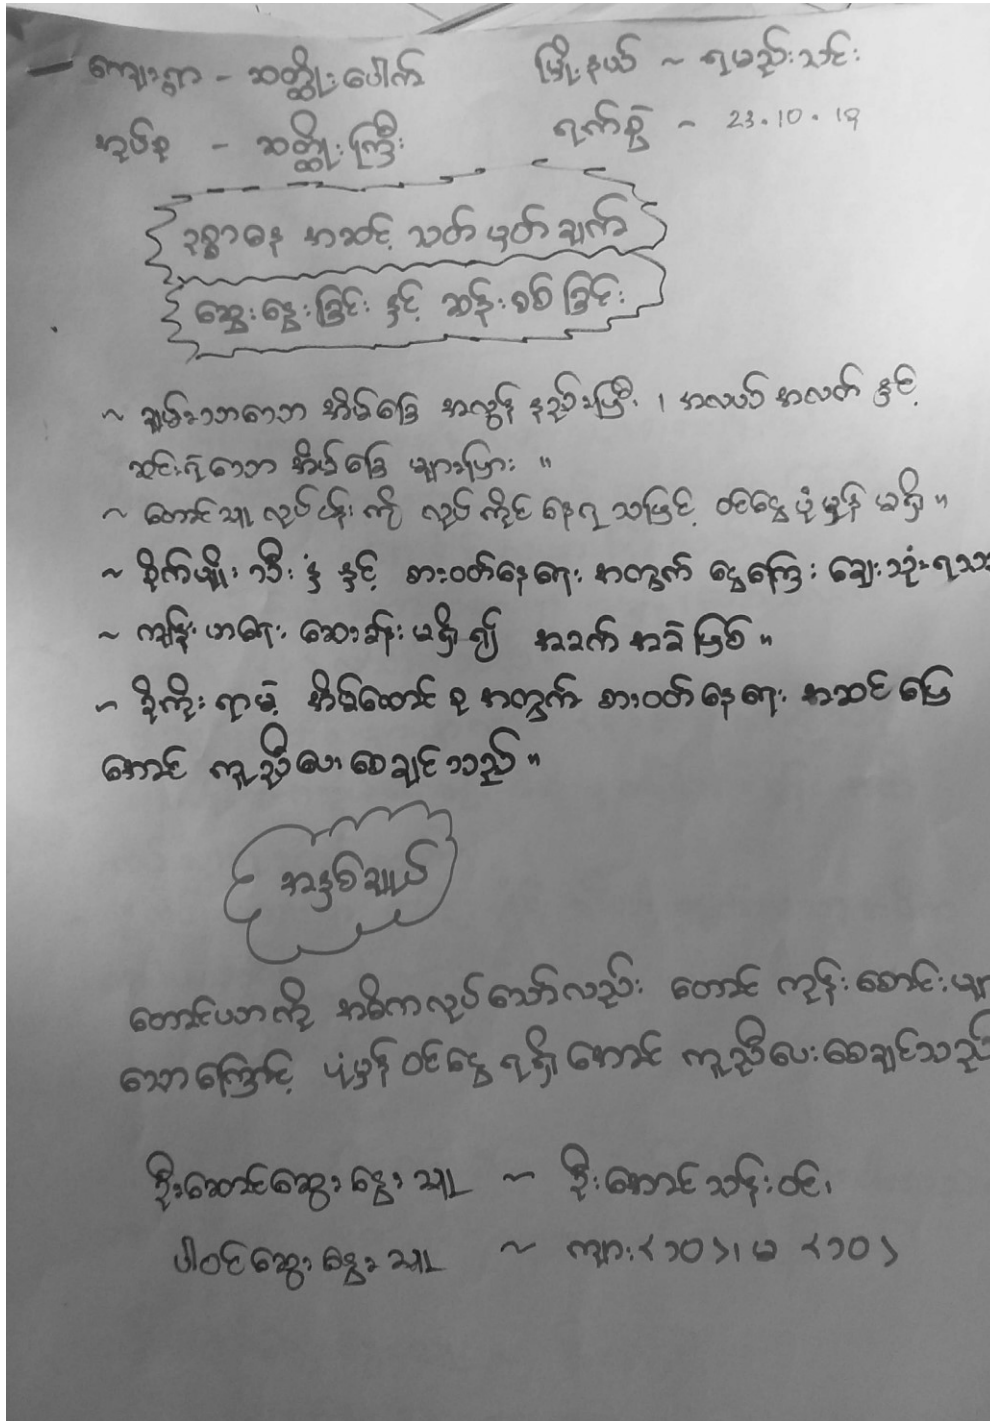 ကျေးရွာ - ဆတ္ထိုးပေါက် မြို့နယ် ~ ရမည်းသင်း
အုပ်စု - ဆတ္ထိုးကြီး ရက်စွဲ - 23.10.19
ဥစ္စာဓန အဆင့် သတ်မှတ်ချက်
ဆွေးနွေးခြင်း နှင့် ဆန်းစစ်ခြင်း
~ ချမ်းသာသော အိမ်ခြေ အလွန်နည်းပြီး ၊ အလယ် အလတ် နှင့်
ဆင်းရဲသော အိမ်ခြေ များပြား ။
~ တောင်သူ လုပ်ငန်းကို လုပ်ကိုင်နေရသဖြင့် ဝင်ငွေပုံမှန် မရှိ ။
~ စိုက်ပျိုး သီးနှံ နှင့် စားဝတ်နေရေး အတွက် ငွေကြေး ချေးသုံးရသ
~ ကျန်းမာရေး ဆေးခန်း မရှိ၍ အခက်အခဲဖြစ် ။
~ ခိုကိုးရာမဲ့ အိမ်ထောင်စု အတွက် စားဝတ်နေရေး အဆင်ပြေ
အောင် ကူညီပေးစေချင်သည် ။
အနှစ်ချုပ်
တောင်ယာကို အဓိကလုပ်သော်လည်း တောင် ကုန်းစောင်းများ
သောကြောင့် ပုံမှန်ဝင်ငွေ ရရှိအောင် ကူညီပေးစေချင်သည်
ဦးဆောင်ဆွေးနွေးသူ ~ ဦးအောင်သန်းဝင်း
ပါဝင်ဆွေးနွေးသူ ~ ကျား<၁၀>၊ မ <၁၀>